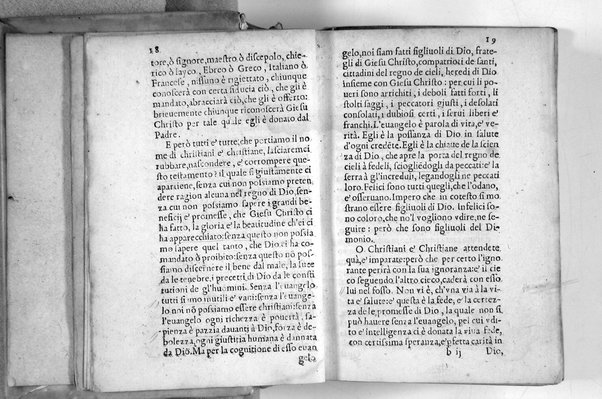 18
tore, ò signore, maestro, ò discepolo, chie-
rico ò layco, Ebreo ò Greco, Italiano ò
Francese, nissuno è rigiettato, chiunque
conoscerà con certa fiducia ciò, che gli è
mandato, abraccierà ciò, che gli è offerto:
brieuemente chiunque riconoscerà Giesu
Christo per tale quale egli è donato dal
Padre.
E però tutti e' tutte, che portiamo il no
me di christiani e' christiane, lasciaremci
rubbare, nascondere, e' corrompere que-
sto testamento? il quale si giustamente ci
apartiene, senza cui non possiamo preten
dere ragion alcuna nel regno di Dio, sen-
za cui non possiamo sapere i grandi be-
neficij e' promesse, che Giesu Christo ci
ha fatto, la gloria e' la beatitudine ch'ei ci
ha apparecchiato: senza questo non possia
mo sapere quel tanto, che Dio ci ha co
mandato ò proibito: senza questo nõ pos-
siamo discernere il bene dal male, la luce
da le tenebre, i precetti di Dio da le consti
tutioni de gl'huomini. Senza l'euangelo
tutti siamo inutili e' vani: senza l'euange-
lo noi nõ possiamo essere christiani: senza
l'euangelo ogni richezza è pouertà, sa-
pienza è pazzia dauanti à Dio, forza è de-
bolezza, ogni giustitia humana è dannata
da Dio. Ma per la cognitione di esso euan
gelo
19
gelo, noi siam fatti figliuoli di Dio, frate-
gli di Giesu Christo, compatrioti de santi,
cittadini del regno de cieli, heredi di Dio
insieme con Giesu Christo: per cui li po-
ueri sono artichiti, i deboli fatti forti, li
stolti saggi, i peccatori giusti, i desolati
consolati, i dubiosi certi, i serui liberi e'
franchi. L'euangelo è parola di vita, e' ve-
rità. Egli è la possanza di Dio in salute
d'ogni credẽte. Egli è la chiaue de la scien
za di Dio, che apre la porta del regno de
cieli à fedeli, sciogliẽdogli da peccati: e' la
serra à gl'increduli, legandogli ne peccati
loro. Felici sono tutti quegli, che l'odano,
e' osseruano. Impero che in cotesto si mo
strano essere figliuoli di Dio. Infelici so-
no coloro, che no'l vogliono vdire, ne se
guire: però che sono figliuoli del Di-
monio.
O Christiani e' Christiane attendete
quà, e' imparate: però che per certo l'igno
rante perirà con la sua ignoranza: e' il cie
co seguendo l'altro cieco, caderà con esso
lui nel fosso. Non vi è, ch'vna via à la vi-
ta e' salute: e' questa è la fede, e' la certez-
za de le promesse di Dio, la quale non si
può hauere senza l'euangelo, pel cui vdi-
to e' intelligenza ci è donata la viua fede,
con certissima speranza, e' pfetta carità in
b ij Dio,